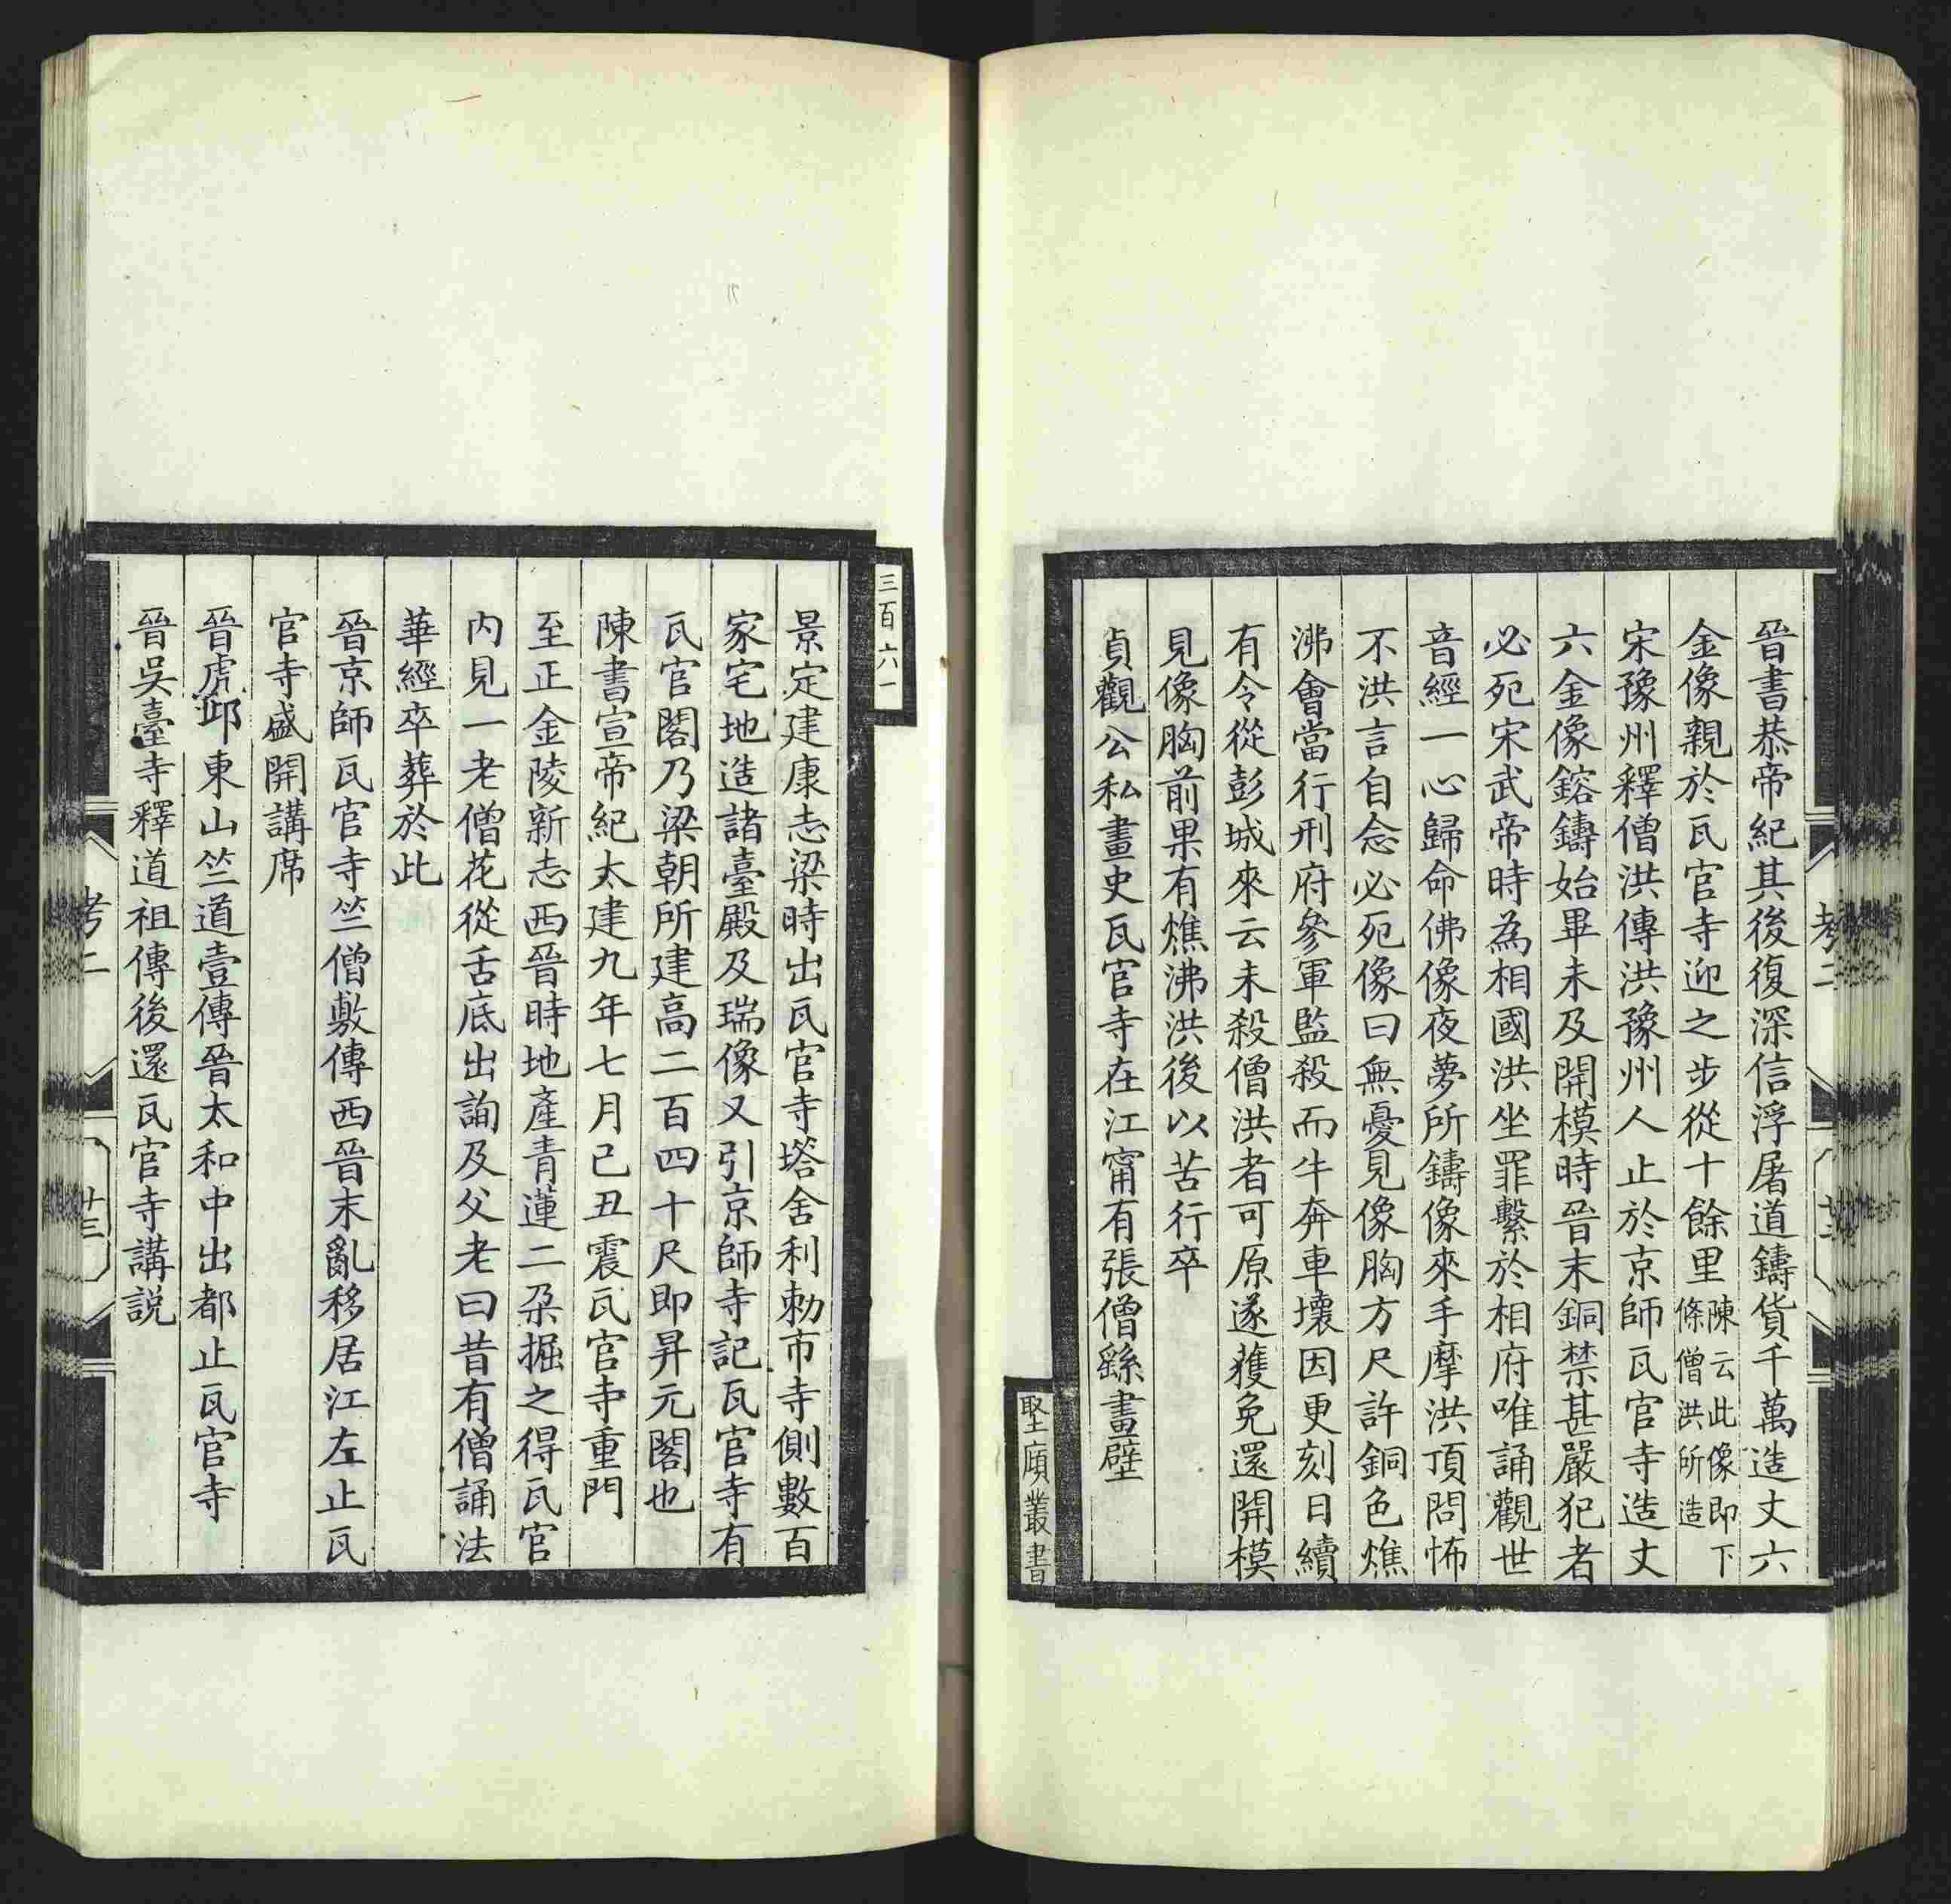 晉書恭帝紀其後復深信浮屠道鑄貨千萬造丈六
金像親於瓦官寺迎之步從十餘里陳云此像即下條僧洪所造
宋豫州釋僧洪傳洪豫州人止於京師瓦官寺造丈
六金像鎔鑄始畢未及開模時晉末銅禁甚嚴犯者
必死宋武帝時為相國洪坐罪繫於相府唯誦觀世
音經一心歸命佛像夜夢所鑄像來手摩洪頂問怖
不洪言自念必死像曰無憂見像胸方尺許銅色燋
沸會當行刑府參軍監殺而牛奔車壞因更刻日續
有令從彭城來云未殺僧洪者可原遂獲免還開模
見像胸前果有燋沸洪後以苦行卒
貞觀公私畫史瓦官寺在江甯有張僧繇畫壁
堅廎叢書
三百六一
景定建康志梁時出瓦官寺塔舍利勅市寺側數百
家宅地造諸臺殿及瑞像又引京師寺記瓦官寺有
瓦官閣乃梁朝所建高二百四十尺即昇元閣也
陳書宣帝紀太建九年七月己丑震瓦官寺重門
至正金陵新志西晉時地產青蓮二朶掘之得瓦官
內見一老僧花從舌底出詢及父老曰昔有僧誦法
華經卒葬於此
晉京師瓦官寺竺僧敷傳西晉末亂移居江左止瓦
官寺盛開講席
晉虎邱東山竺道壹傳晉太和中出都止瓦官寺
晉吳臺寺釋道祖傳後還瓦官寺講說
考二
廿三